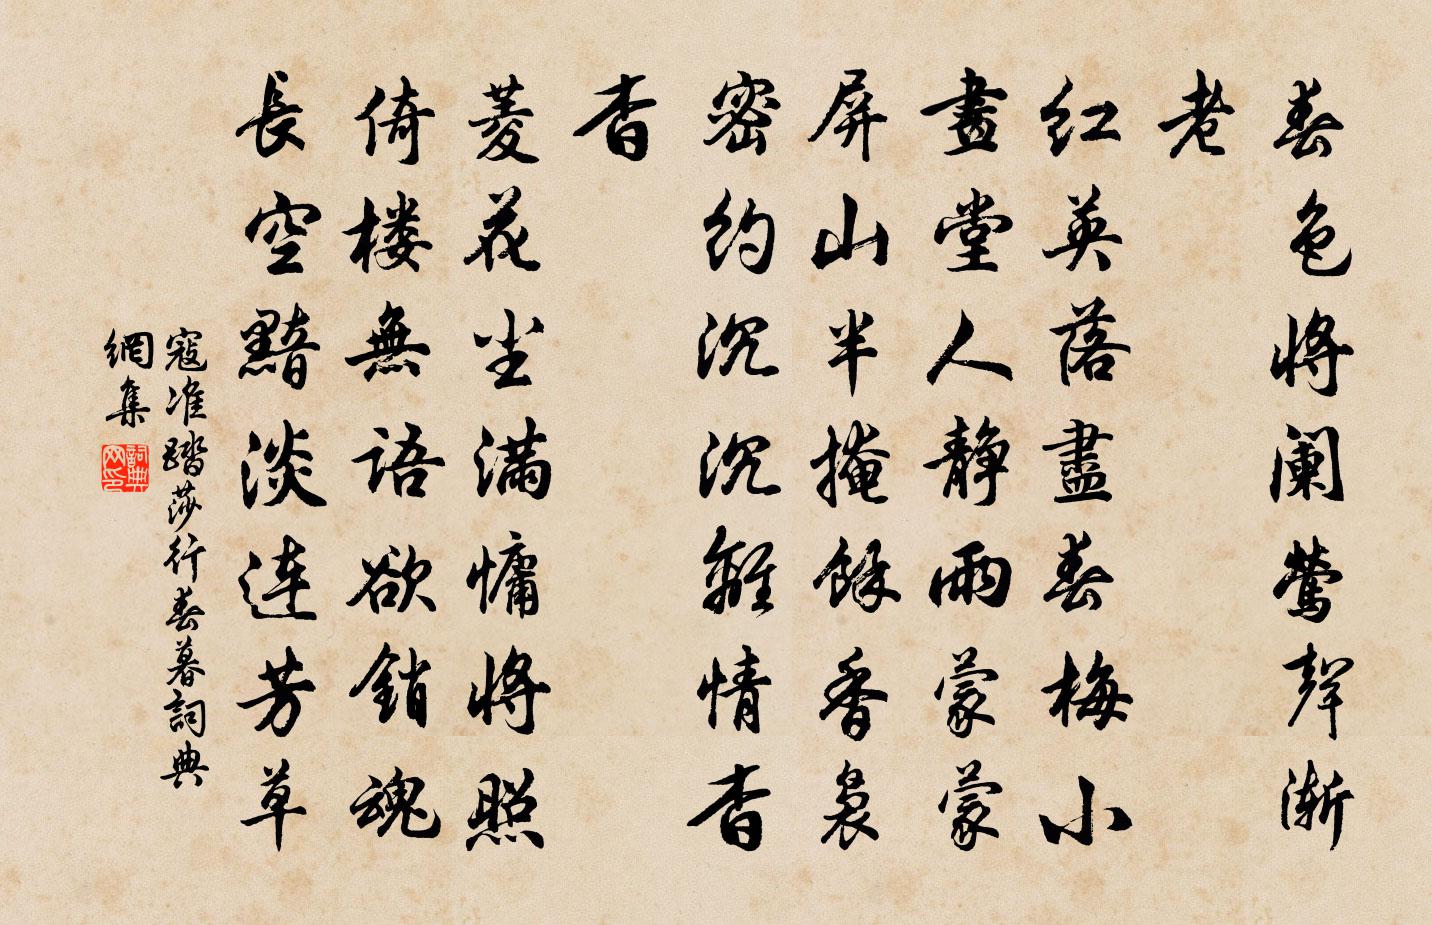 春色将阑莺聲渐
老
红英落盡春梅小
畫堂人静雨蒙蒙
屏山半掩餘香袅
密约沉沉離情杳
杳
菱花尘满慵将照
倚楼無语欲銷魂
長空黯淡连芳草
寇准踏莎行春暮詞典
網集
詞典网